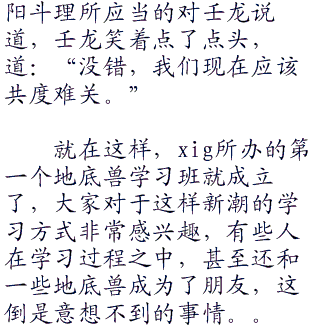 阳斗理所应当的对壬龙说
道，壬龙笑着点了点头，
道：“没错，我们现在应该
共度难关。”
就在这样，xig所办的第
一个地底兽学习班就成立
了，大家对于这样新潮的学
习方式非常感兴趣，有些人
在学习过程之中，甚至还和
一些地底兽成为了朋友，这
倒是意想不到的事情。。